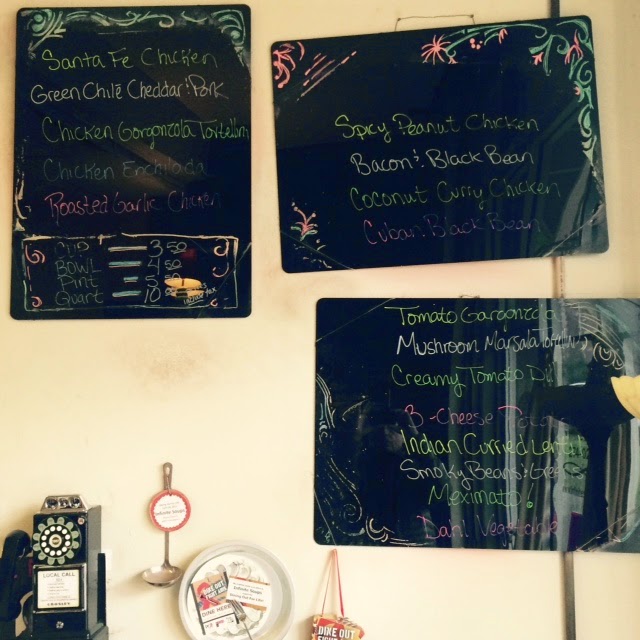 Santa Fe Chicken
Green Chile Cheddar & Pork
Chicken Gorgonzola Tortellini
Chicken Enchilada
Roasted Garlic Chicken
Cup 3.50
Bowl 4.50
Pint
Quart 10
Spicy Peanut Chicken
Bacon & Black Bean
Coconut Curry Chicken
Cuban Black Bean
Tomato Gorgonzola
Mushroom Marsala Tortellini
Creamy Tomato
3-Cheese
Indian Curried Lentil
Smoky Beans &
Meximato
Dahl Vegetable
LOCAL CALL
Infinite Soups
DINE OUT
DINE HERE
Infinite Soups
DINE OUT